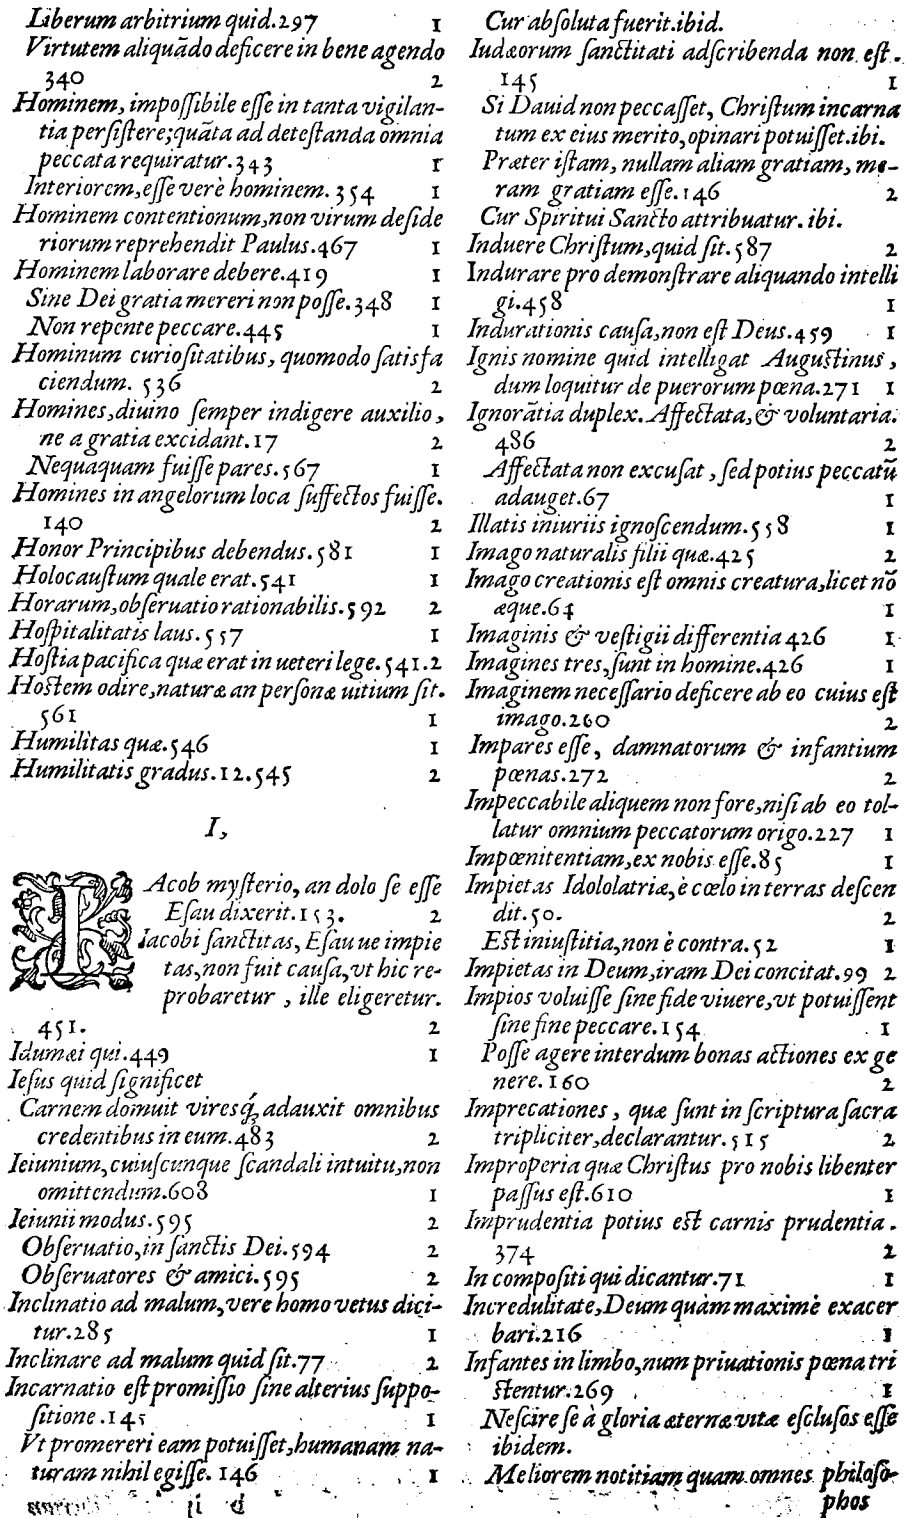 Liberum arbitrium quid.297 1
Virtutem aliquãdo deficere in bene agendo
340 2
Hominem, impoſſibile eſſe in tanta vigilan-
tia perſiſtere; quãta ad deteſtanda omnia
peccata requiratur.343 1
Interiorem, eſſe verè hominem. 354 1
Hominem contentionum, non virum deſide
riorum reprehendit Paulus.467 1
Hominem laborare debere.419 1
Sine Dei gratia mereri non poſſe.348 1
Non repente peccare.445 1
Hominum curioſitatibus, quomodo ſatisfa
ciendum. 536 2
Homines, diuino ſemper indigere auxilio,
ne a gratia excidant.17 2
Nequaquam fuiſſe pares.567 1
Homines in angelorum loca ſuffectos fuiſſe.
140 2
Honor Principibus debendus.581 1
Holocauſtum quale erat.541 1
Horarum, obſeruatio rationabilis.592 2
Hoſpitalitatis laus.557 1
Hoſtia pacifica quæ erat in ueteri lege.541.2
Hoſtem odire, naturæ an perſonæ uitium ſit.
561 1
Humilitas quæ.546 1
Humilitatis gradus.12.545 2
I,
IAcob myſterio, an dolo ſe eſſe
Eſau dixerit.153. 2
Iacobi ſanctitas, Eſau ue impie
tas, non fuit cauſa, vt hic re-
probaretur, ille eligeretur.
451. 2
Idumæi qui.449 1
Ieſus quid ſignificet
Carnem domuit viresq́; adauxit omnibus
credentibus in eum.483 2
Ieiunium, cuiuſcunque ſcandali intuitu, non
omittendum.608 1
Ieiunii modus.595 2
Obſeruatio, in ſanctis Dei.594 2
Obſeruatores & amici.595 2
Inclinatio ad malum, vere homo vetus dici-
tur.285 1
Inclinare ad malum quid ſit.77 2
Incarnatio eſt promiſſio ſine alterius ſuppo-
ſitione.145 1
Vt promereri eam potuiſſet, humanam na-
turam nihil egiſſe. 146 1
Cur abſoluta fuerit.ibid.
Iudæorum ſanctitati adſcribenda non eſt.
145 1
Si Dauid non peccaſſet, Chriſtum incarna
tum ex eius merito, opinari potuiſſet.ibi.
Præter iſtam, nullam aliam gratiam, me-
ram gratiam eſſe.146 2
Cur Spiritui Sancto attribuatur. ibi.
Induere Chriſtum, quid ſit.587 2
Indurare pro demonſtrare aliquando intelli
gi.458 1
Indurationis cauſa, non eſt Deus.459 1
Ignis nomine quid intelligat Auguſtinus,
dum loquitur de puerorum pœna.271 1
Ignorãtia duplex. Affectata, & voluntaria.
486 2
Affectata non excuſat, ſed potius peccatũ
adauget.67 1
Illatis iniuriis ignoſcendum.558 1
Imago naturalis filii quæ.425 2
Imago creationis eſt omnis creatura, licet nõ
æque.64 1
Imaginis & veſtigii differentia 426 1
Imagines tres, ſunt in homine.426 1
Imaginem neceſſario deficere ab eo cuius eſt
imago.260 2
Impares eſſe, damnatorum & infantium
pœnas.272 2
Impeccabile aliquem non fore, niſi ab eo tol-
latur omnium peccatorum origo.227 1
Impœnitentiam, ex nobis eſſe.85 1
Impietas Idololatriæ, è cœlo in terras deſcen
dit.50. 2
Eſt iniuſtitia, non è contra.52 1
Impietas in Deum, iram Dei concitat.99 2
Impios voluiſſe ſine fide viuere, vt potuiſſent
ſine fine peccare.154 1
Poſſe agere interdum bonas actiones ex ge
nere.160 2
Imprecationes, quæ ſunt in ſcriptura ſacra
tripliciter, declarantur.515 2
Improperia quæ Chriſtus pro nobis libenter
paſſus eſt.610 1
Imprudentia potius eſt carnis prudentia.
374 2
In compoſiti qui dicantur.71 1
Incredulitate, Deum quàm maximè exacer
bari.216 1
Infantes in limbo, num priuationis pœna tri
ſtentur.269 1
Neſcire ſe à gloria æternæ vitæ eſcluſos eſſe
ibidem.
Meliorem notitiam quam omnes philoſo-
phos